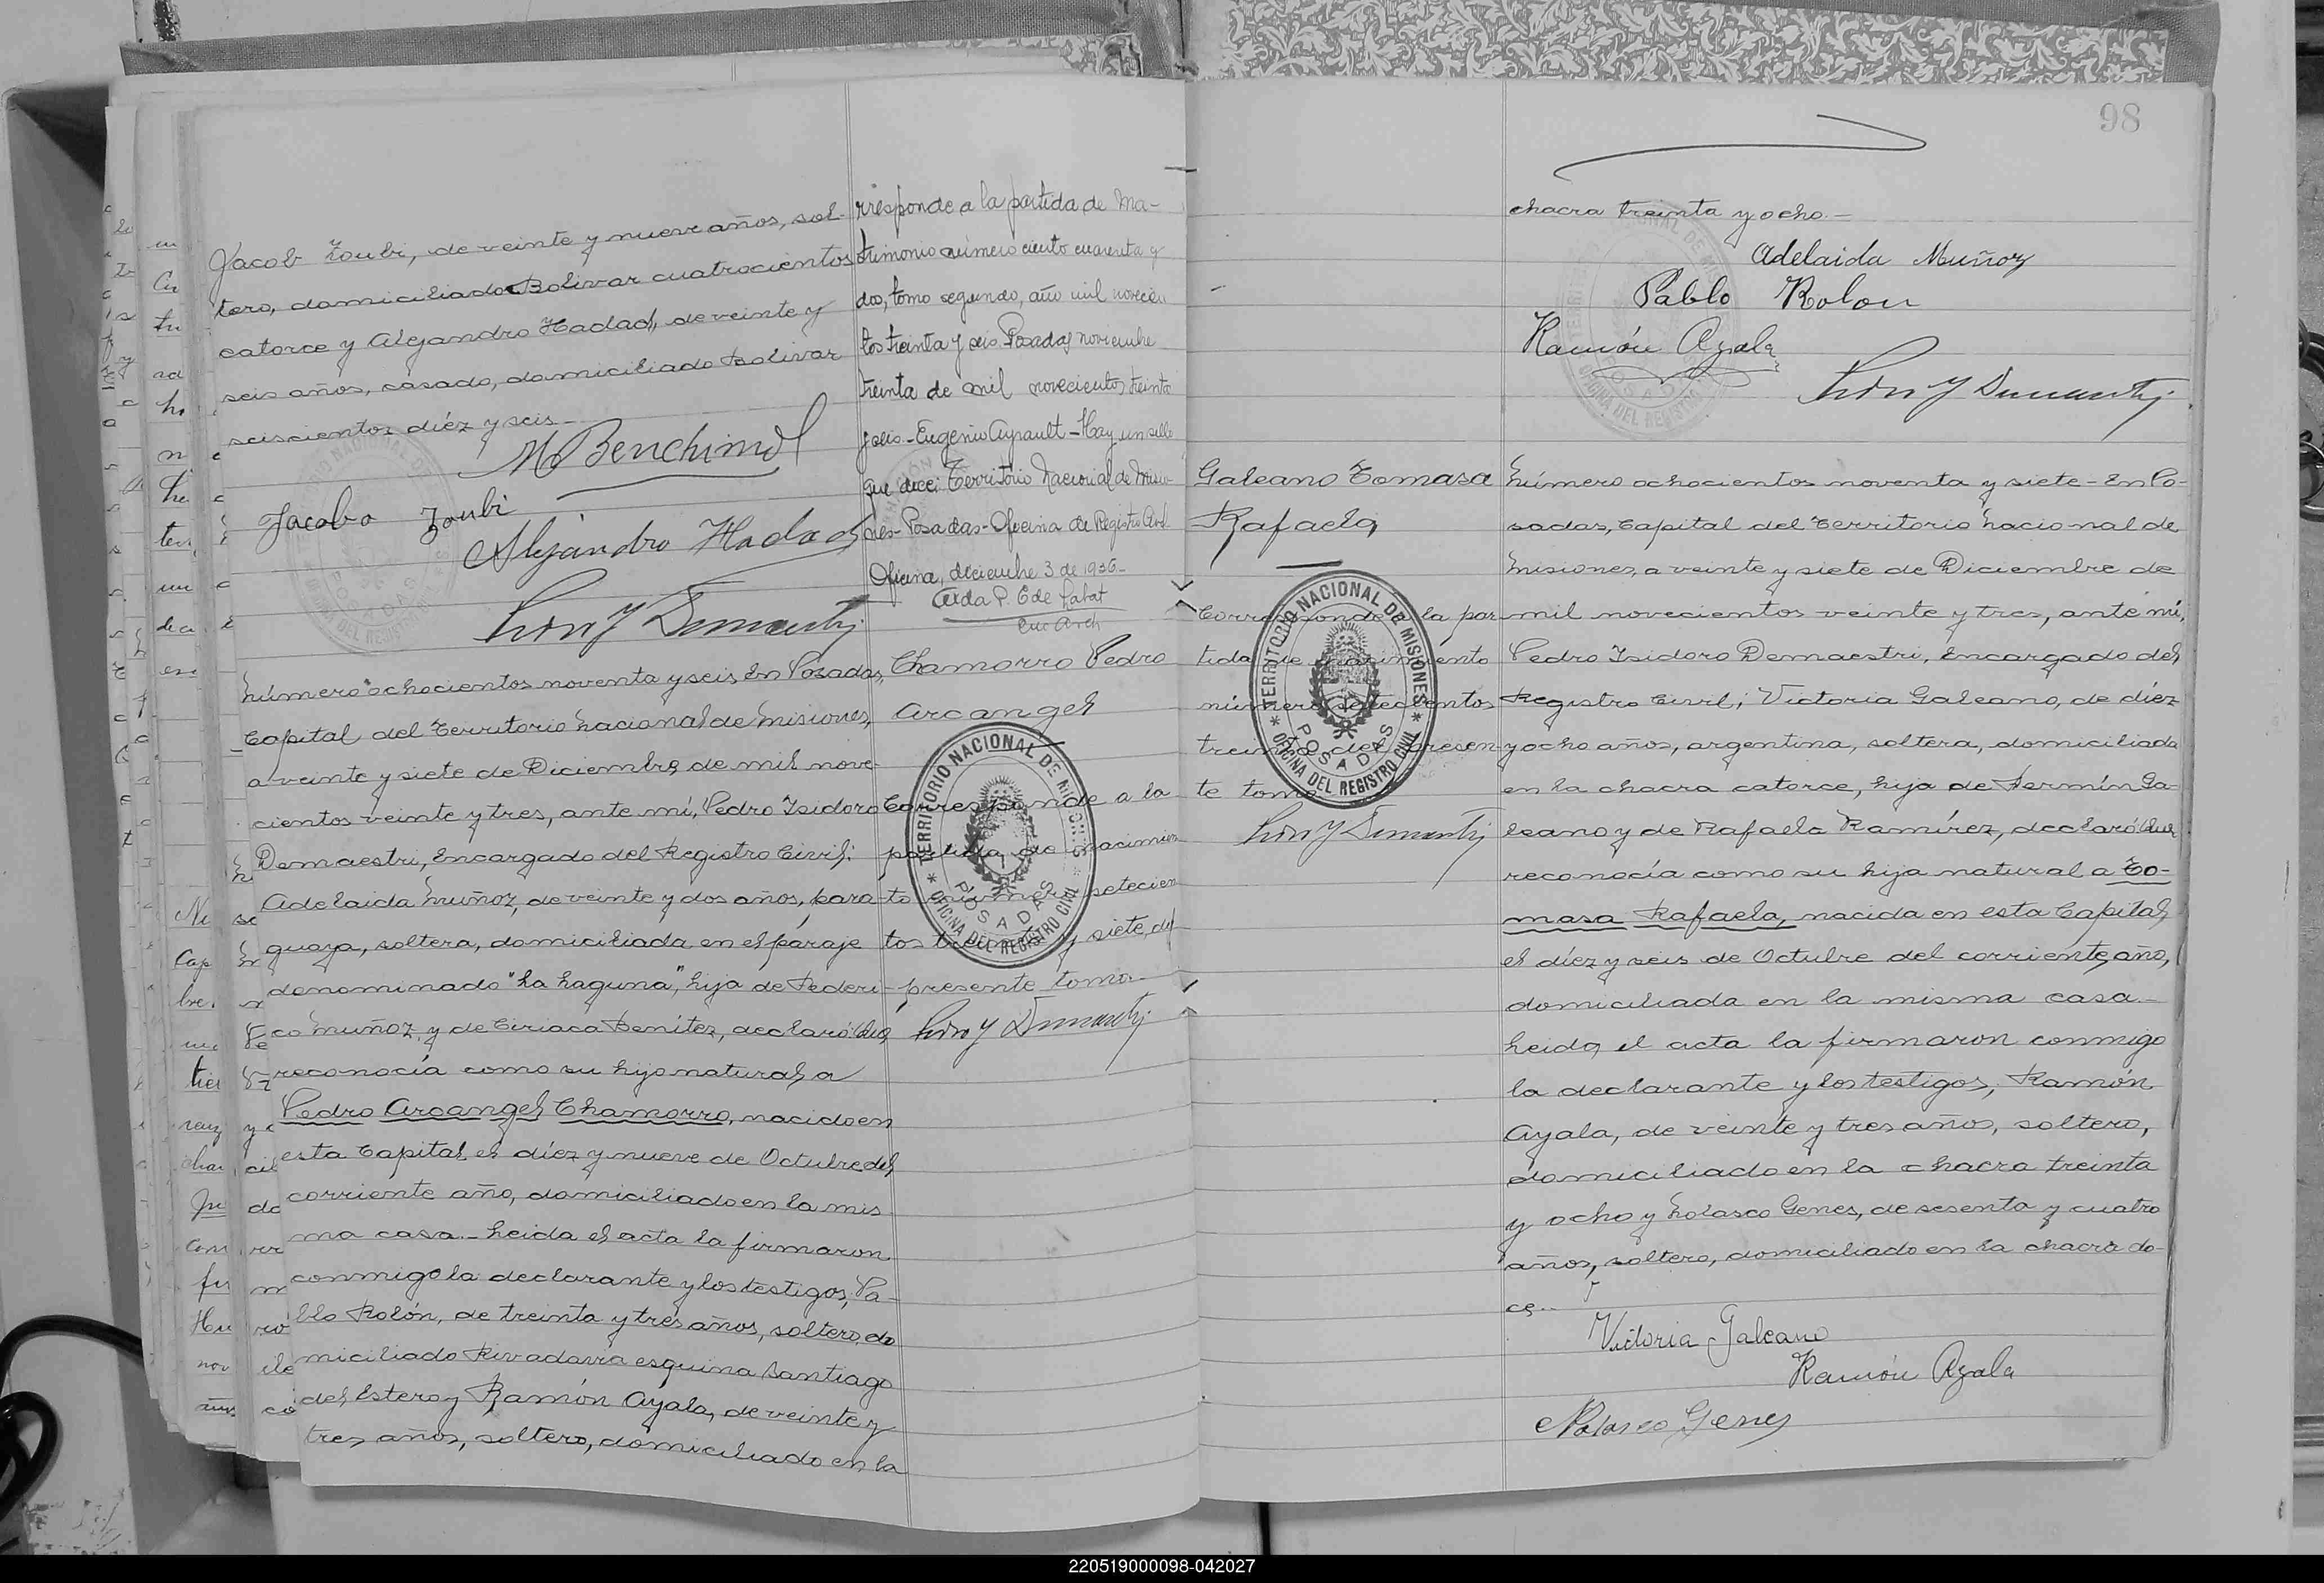 Jacob Zoubi, de veinte y nueve años, sol-
tero, domiciliado Bolivar cuatrocientos
catorce y Alejandro Hadad, de veinte y
seis años, casado, domiciliado Bolivar
seiscientos diéz y seis.-
M Benchimol
Jacobo Zoubi
Alejandro Hadad
rresponde a la partida de Ma-
trimonio número ciento cuarenta y
dos, tomo segundo, año mil novecien
tos treinta y seis. Posadas noviembre
treinta de mil novecientos treinta
y seis.- Eugenio Ayrault - Hay un sello
que dice: Territorio Nacional de Misio-
nes- Posadas- Oficina de Registro Civil
Oficina, diciembre 3 de 1936-
Aida P. E de Labat
Enc Arch
Número ochocientos noventa y seis. En Posadas,
Capital del Territorio Nacional de Misiones,
a veinte y siete de Diciembre de mil nove-
cientos veinte y tres, ante mí, Pedro Isidoro
Demaestri, Encargado del Registro Civil:
Adelaida Muñoz, de veinte y dos años, para-
guaya, soltera, domiciliada en el paraje
denominado "La Laguna", hija de Federi-
co Muñoz y de Ciriaca Benítez, declaró: Que
reconocía como su hijo natural a
Pedro Arcangel Chamorro, nacido en
esta Capital el diéz y nueve de Octubre del
corriente año, domiciliado en la mis
ma casa.- Leida el acta la firmaron
conmigo la declarante y los testigos, Pa-
blo Rolón, de treinta y tres años, soltero, do
miciliado Rivadavia esquina Santiago
del Estero y Ramón Ayala, de veinte y
tres años, soltero, domiciliado en la
Chamorro Pedro
Arcangel
Corresponde a la
partida de nacimien
to número setecien
tos treinta y siete del
presente tomo-
TERRITORIO NACIONAL DE MISIONES
POSADAS
OFICINA DEL REGISTRO CIVIL
98
chacra treinta y ocho.-
Adelaida Muñoz
Pablo Rolon
Ramón Ayala
Galeano Tomasa
Rafaela
Corresponde a la par-
tida de nacimiento
número setecientos
treinta del presen-
te tomo
TERRITORIO NACIONAL DE MISIONES
POSADAS
OFICINA DEL REGISTRO CIVIL
Número ochocientos noventa y siete - En Po-
sadas, Capital del Territorio Nacional de
Misiones, a veinte y siete de Diciembre de
mil novecientos veinte y tres, ante mí,
Pedro Isidoro Demaestri, Encargado del
Registro Civil; Victoria Galeano, de diéz
y ocho años, argentina, soltera, domiciliada
en la chacra catorce, hija de Fermín Ga-
leano y de Rafaela Ramírez, declaró: Que
reconocía como su hija natural a To-
masa Rafaela, nacida en esta Capital
el diéz y seis de Octubre del corriente año,
domiciliada en la misma casa.-
Leida el acta la firmaron conmigo
la declarante y los testigos, Ramón
Ayala, de veinte y tres años, soltero,
domiciliado en la chacra treinta
y ocho y Nolasco Genes, de sesenta y cuatro
años, soltero, domiciliado en la chacra do-
ce.-
Victoria Galeano
Ramón Ayala
Nolasco Genes
220519000098-042027